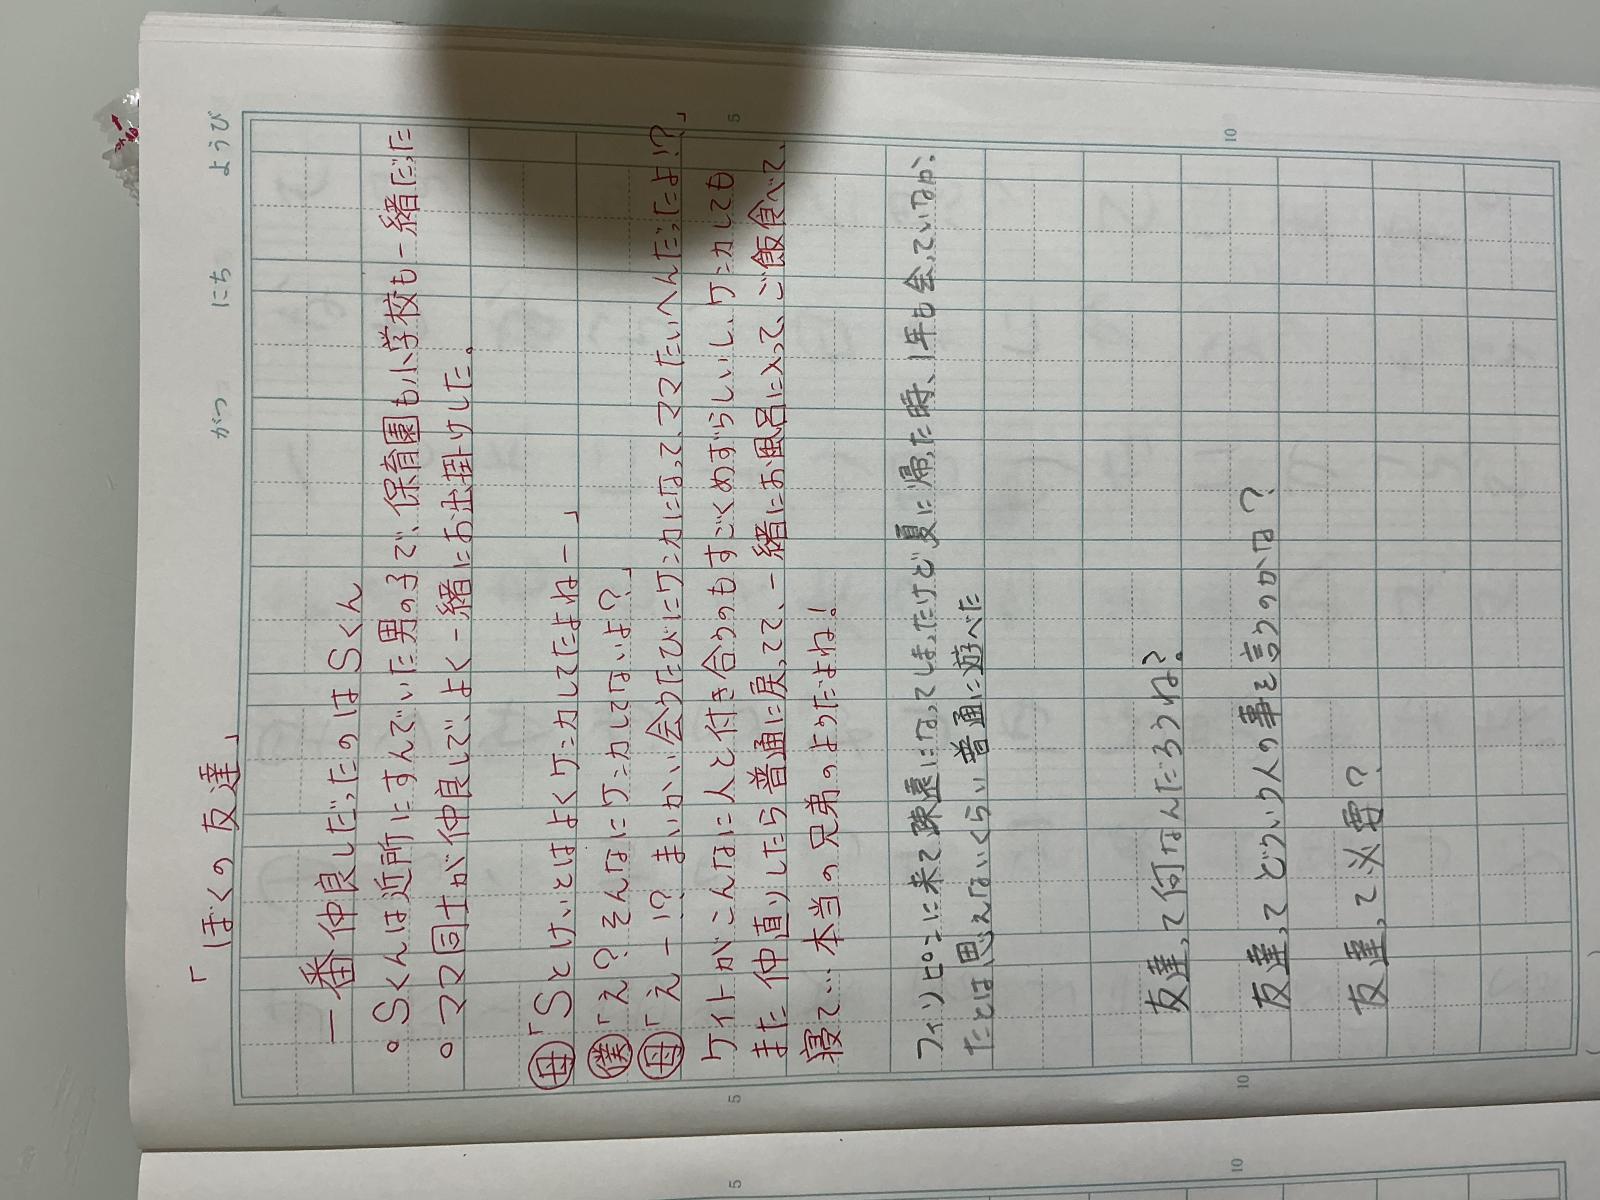 「ぼくの友達」
がつ にち ようび
一番仲良しだったのはSくん
○Sくんは近所にすんでいた男の子で、保育園も小学校も一緒だった
○ママ同士が仲良しで、よく一緒にお出掛けした。
母「Sとけいとはよくケンカしてたよねー」
僕「え?そんなにケンカしてないよ?」
母「えー!?まいかい会うたびにケンカになって、ママたいへんだったよ!?」
ケイトがこんなに人と付き合うのもすごくめずらしいし、ケンカしても
また仲直りしたら普通に戻ってて、一緒にお風呂に入って、ご飯食べて、
寝て…本当の兄弟のようだよね!
フィリピンに来て疎遠になってしまったけど夏に帰った時、1年も会っていなかっ
たとは思えないくらい普通に遊べた
友達って何なんだろうね?
友達ってどういう人の事を言うのかな?
友達って必要?
5
10
5
10
5
10